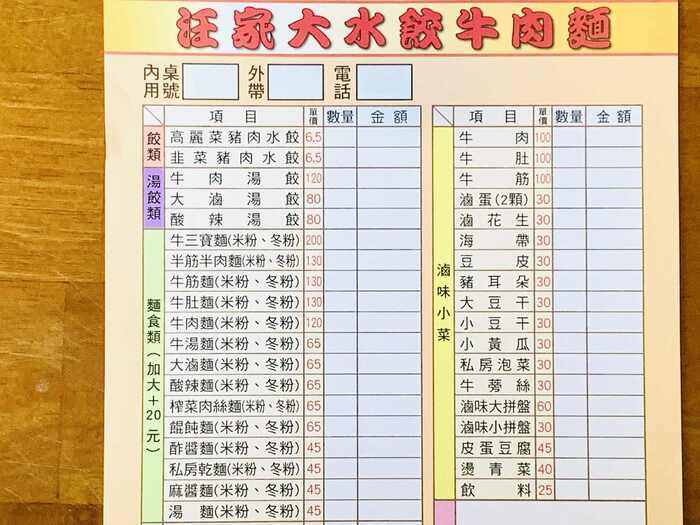 汪家大水餃牛肉麵
內用 桌號 外帶 電話
項目 單價 數量 金額
餃類
高麗菜豬肉水餃 6.5
韭菜豬肉水餃 6.5
湯餃類
牛肉湯餃 120
大滷湯餃 80
酸辣湯餃 80
麵食類(加大+20元)
牛三寶麵(米粉、冬粉) 200
半筋半肉麵(米粉、冬粉) 130
牛筋麵(米粉、冬粉) 130
牛肚麵(米粉、冬粉) 130
牛肉麵(米粉、冬粉) 120
牛湯麵(米粉、冬粉) 65
大滷麵(米粉、冬粉) 65
酸辣麵(米粉、冬粉) 65
榨菜肉絲麵(米粉、冬粉) 65
餛飩麵(米粉、冬粉) 65
酢醬麵(米粉、冬粉) 45
私房乾麵(米粉、冬粉) 45
麻醬麵(米粉、冬粉) 45
湯麵(米粉、冬粉) 45
項目 單價 數量 金額
滷味小菜
牛肉 100
牛肚 100
牛筋 100
滷蛋(2顆) 30
滷花生 30
海帶 30
豆皮 30
豬耳朵 30
大豆干 30
小豆干 30
小黃瓜 30
私房泡菜 30
牛蒡絲 30
滷味大拼盤 60
滷味小拼盤 30
皮蛋豆腐 45
燙青菜 40
飲料 25